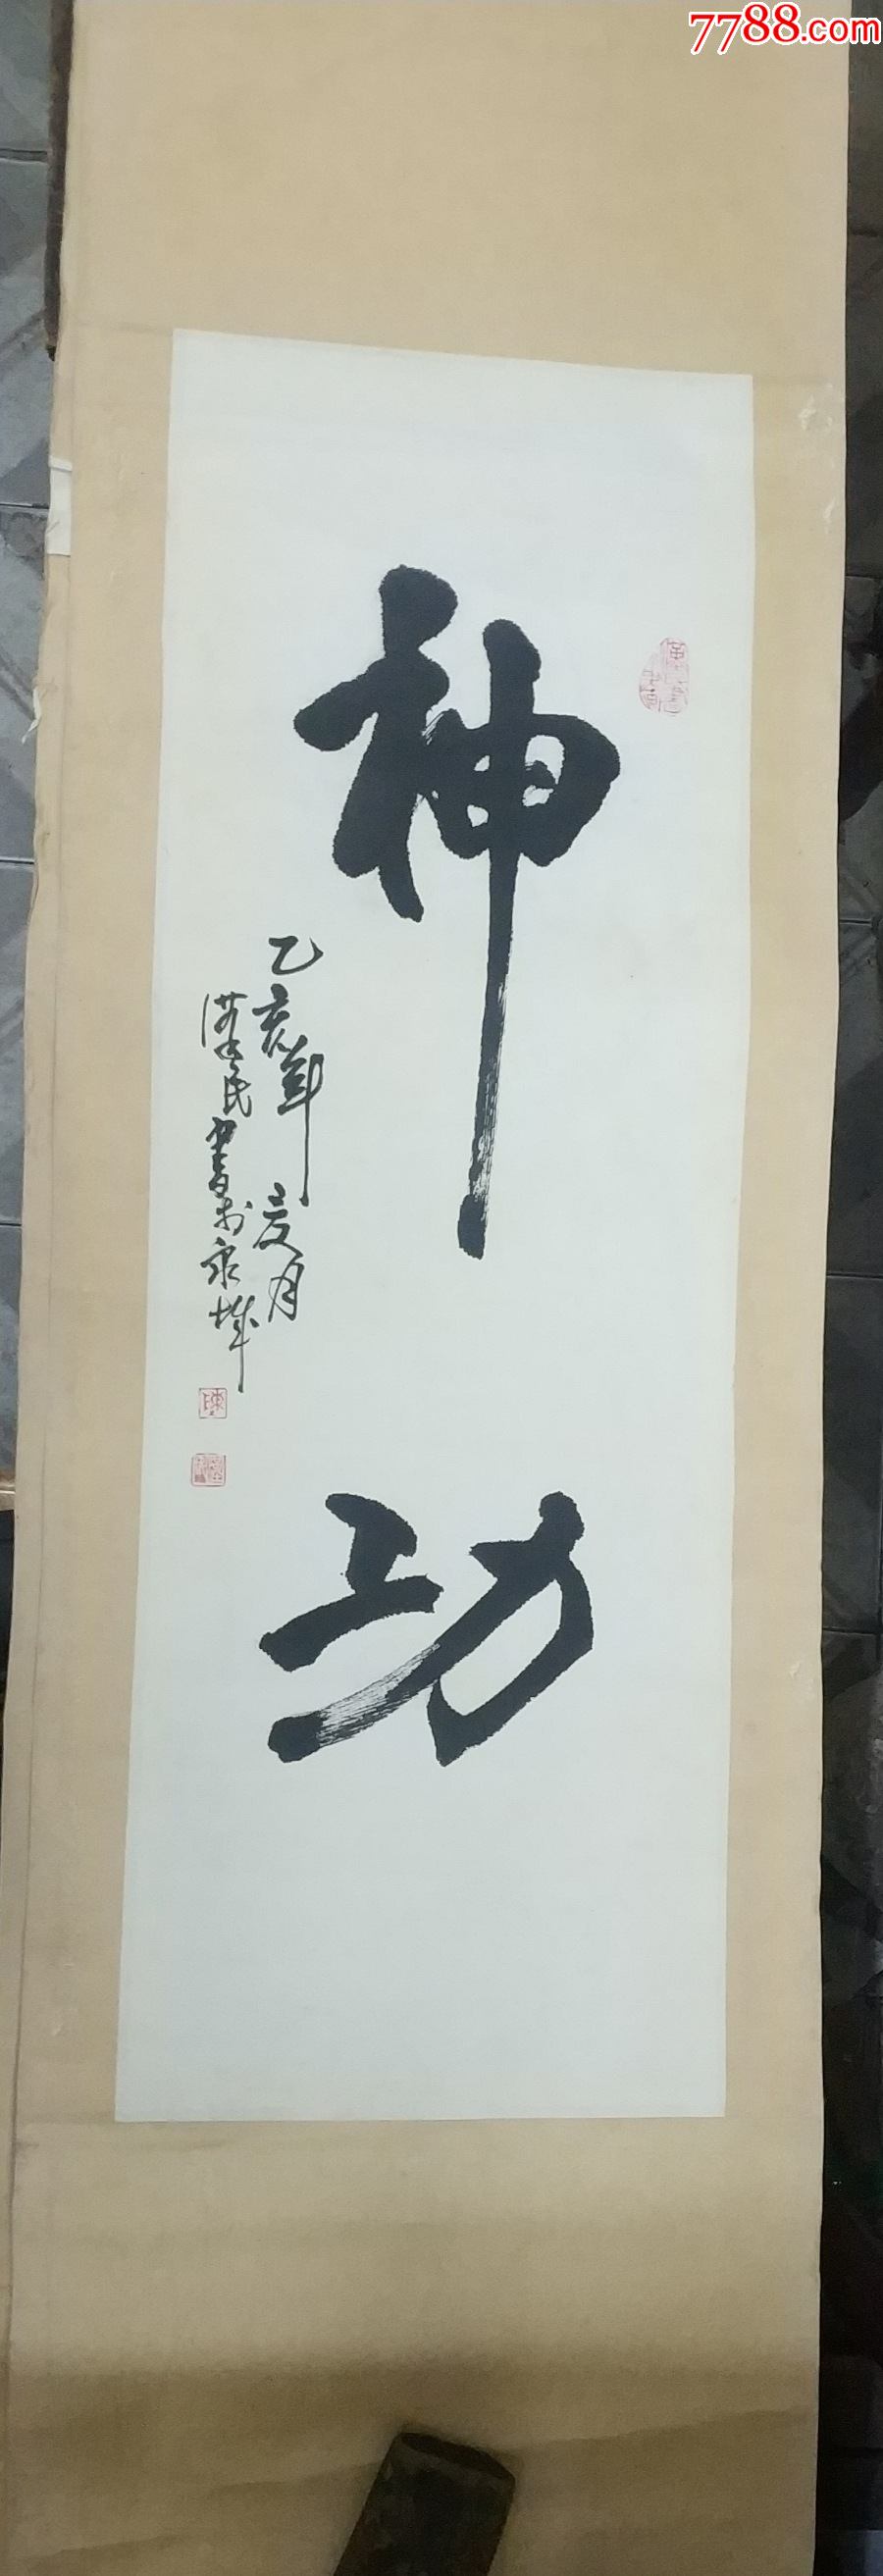 7788.com
神功
乙亥年夏月
漢民書於泉城
陳